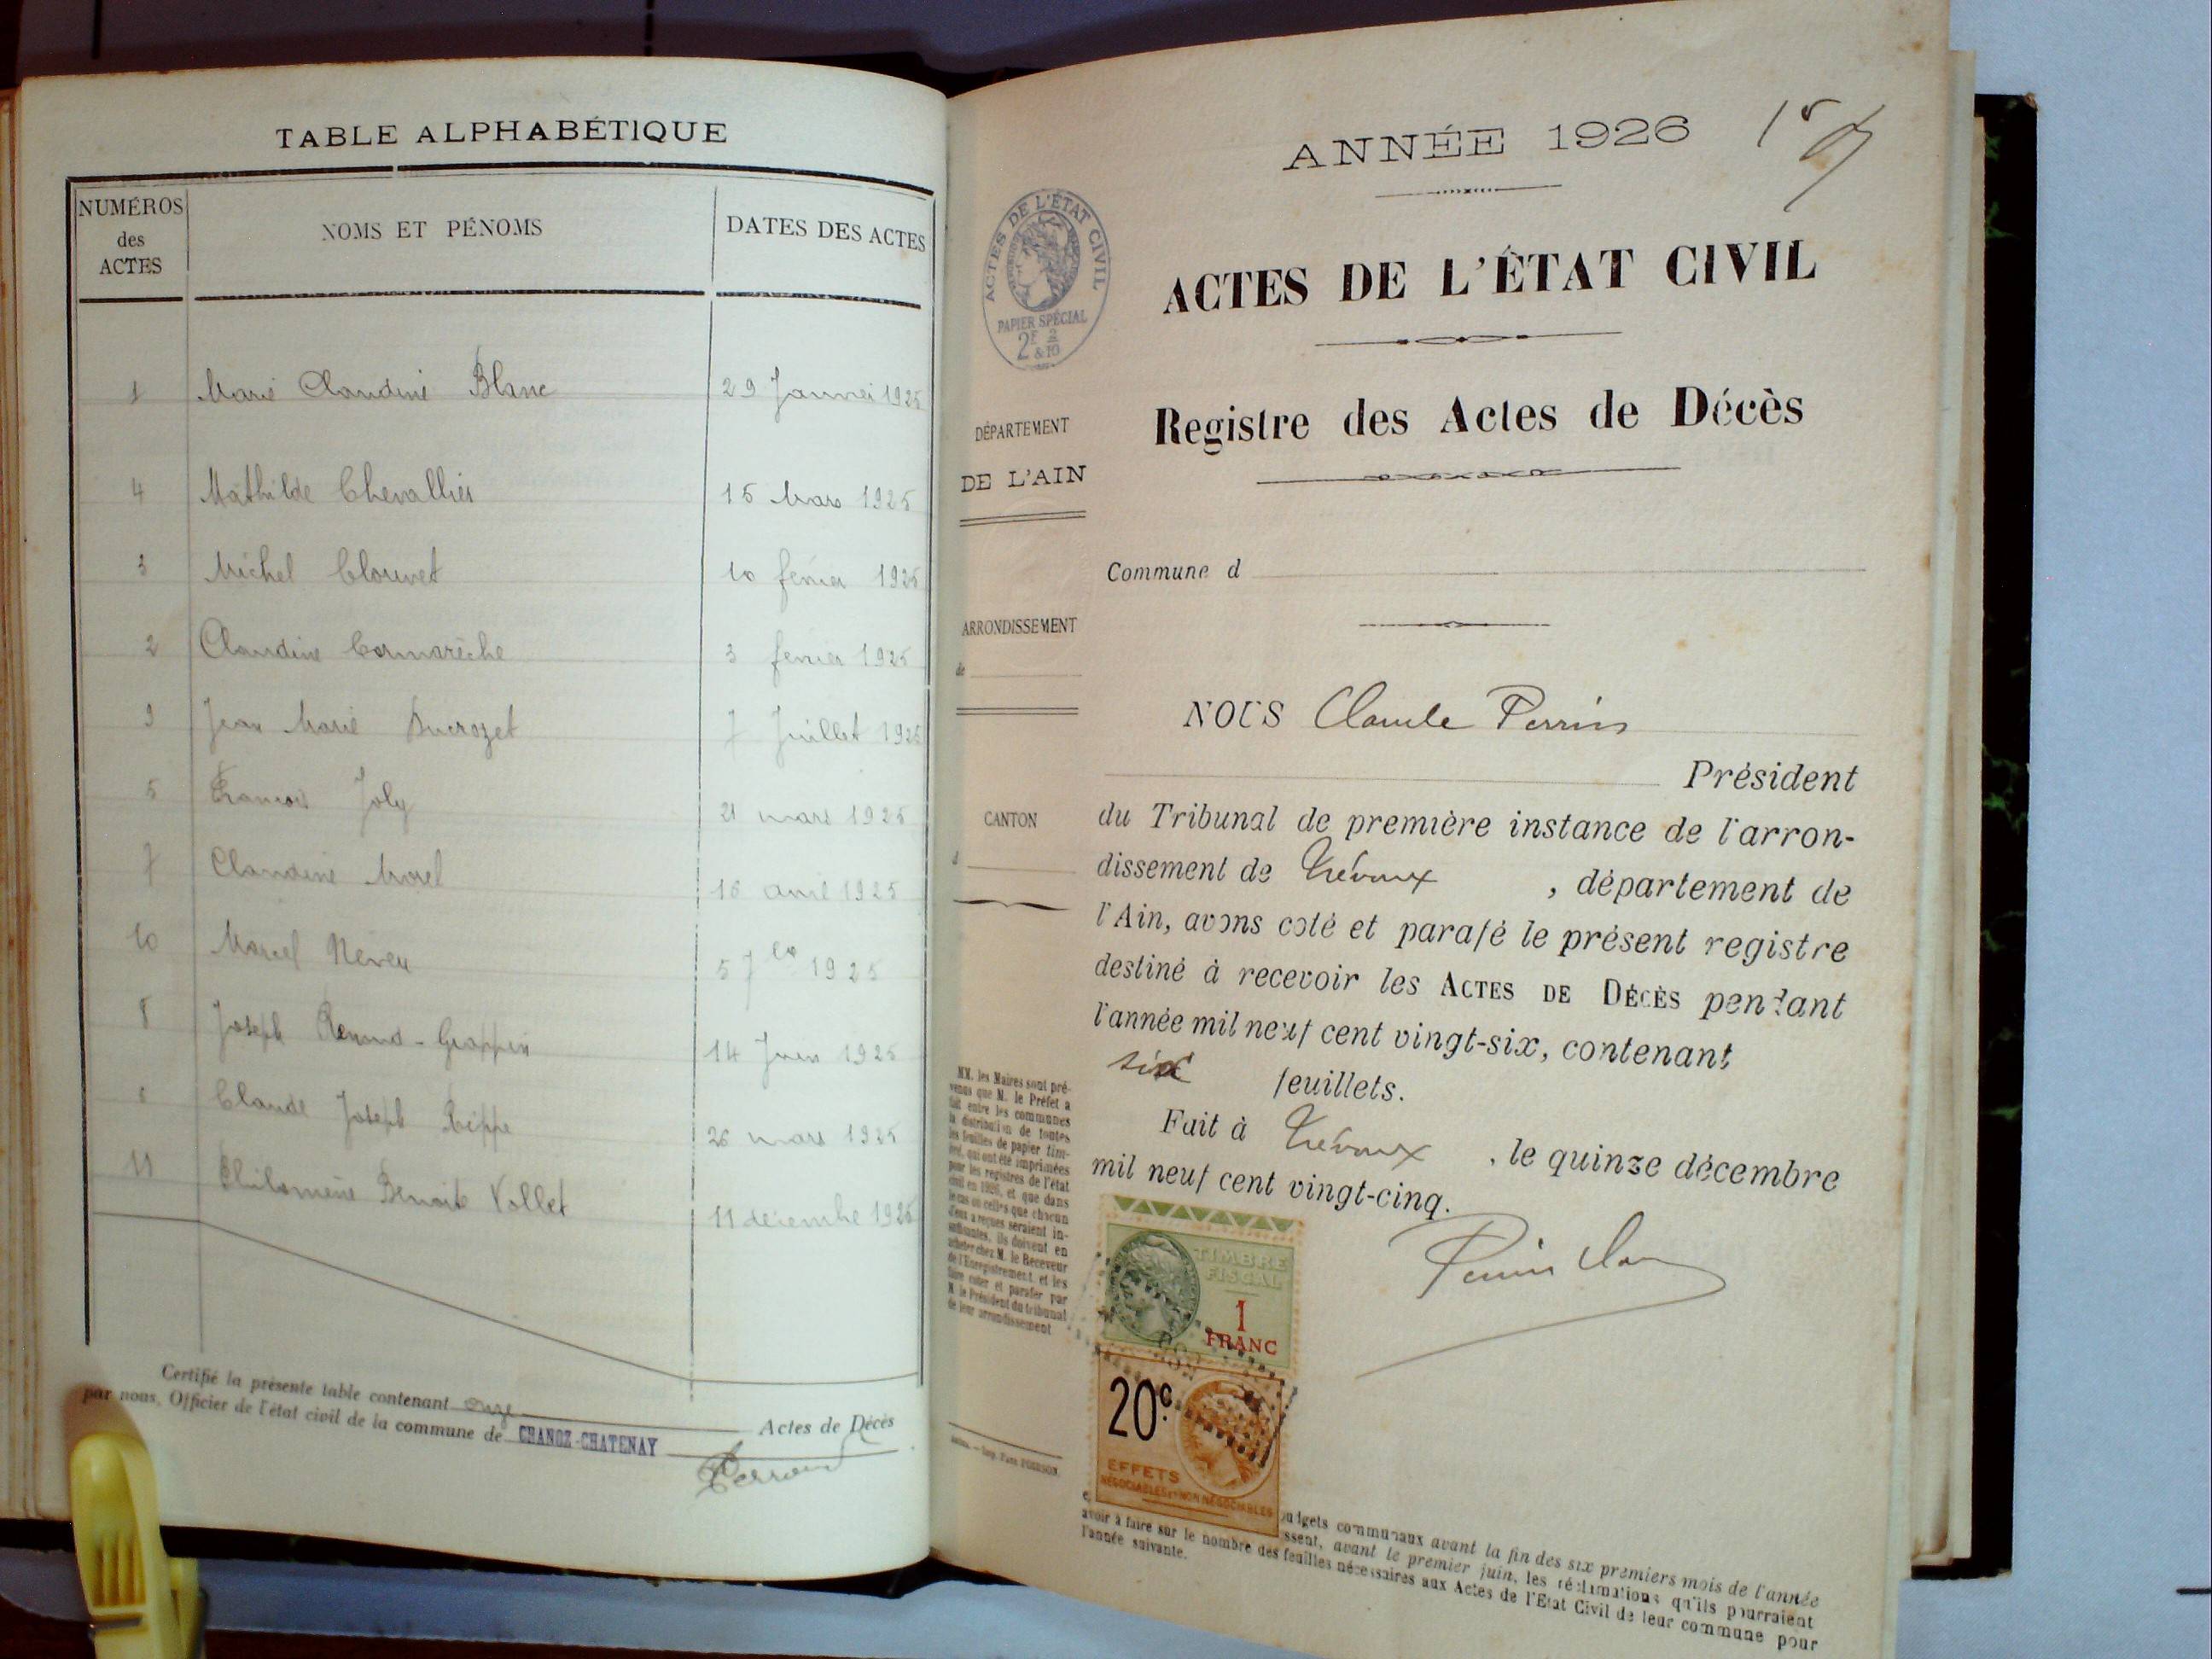 TABLE ALPHABÉTIQUE
NUMÉROS
des
ACTES
NOMS ET PÉNOMS
DATES DES ACTES
1 Marie Claudine Blanc 29 Janvier 1925
4 Mathilde Chevallier 15 Mars 1925
3 Michel Clouvet 10 fevrier 1925
2 Claudine Cormarèche 3 fevrier 1925
9 Jean Marie Ducrozet 7 Juillet 1925
5 Francois Joly 21 mars 1925
7 Claudine Morel 16 avril 1925
10 Marcel Neveu 5 7bre 1925
8 Joseph Renoud-Grappin 14 Juin 1925
6 Claude Joseph Rippe 26 mars 1925
11 Philomène Benoite Vollet 11 décembre 1925
Certifié la présente table contenant onze Actes de Décès
par nous, Officier de l'état civil de la commune de CHANOZ-CHATENAY
ANNÉE 1926
ACTES DE L'ÉTAT CIVIL
PAPIER SPÉCIAL
2F 2
&10
ACTES DE L'ÉTAT CIVIL
Registre des Actes de Décès
DÉPARTEMENT
DE L'AIN
Commune d
ARRONDISSEMENT
de
CANTON
d
NOUS Claude Perrin
Président
du Tribunal de première instance de l'arron-
dissement de Trévoux, département de
l'Ain, avons coté et parafé le présent registre
destiné à recevoir les ACTES DE DÉCÈS pendant
l'année mil neuf cent vingt-six, contenant
six feuillets.
Fait à Trévoux, le quinze décembre
mil neuf cent vingt-cinq.
MM. les Maires sont pré-
venus que M. le Préfet a
fait entre les communes
la distribution de toutes
les feuilles de papier tim-
bré, qui ont été imprimées
pour les registres de l'état
civil en 1926, et que dans
le cas où celles que chacun
d'eux a reçues seraient in-
suffisantes, ils doivent en
acheter chez M. le Receveur
de l'Enregistrement et les
faire coter et parafer par
M. le Président du tribunal
de leur arrondissement
TIMBRE
FISCAL
1
FRANC
20c.
EFFETS
NÉGOCIABLES ET NON NÉGOCIABLES
communaux avant la fin des six premiers mois de l'année
avant le premier juin, les réclamations qu'ils pourraient
avoir à faire sur le nombre des feuilles nécessaires aux Actes de l'Etat Civil de leur commune pour
l'année suivante.